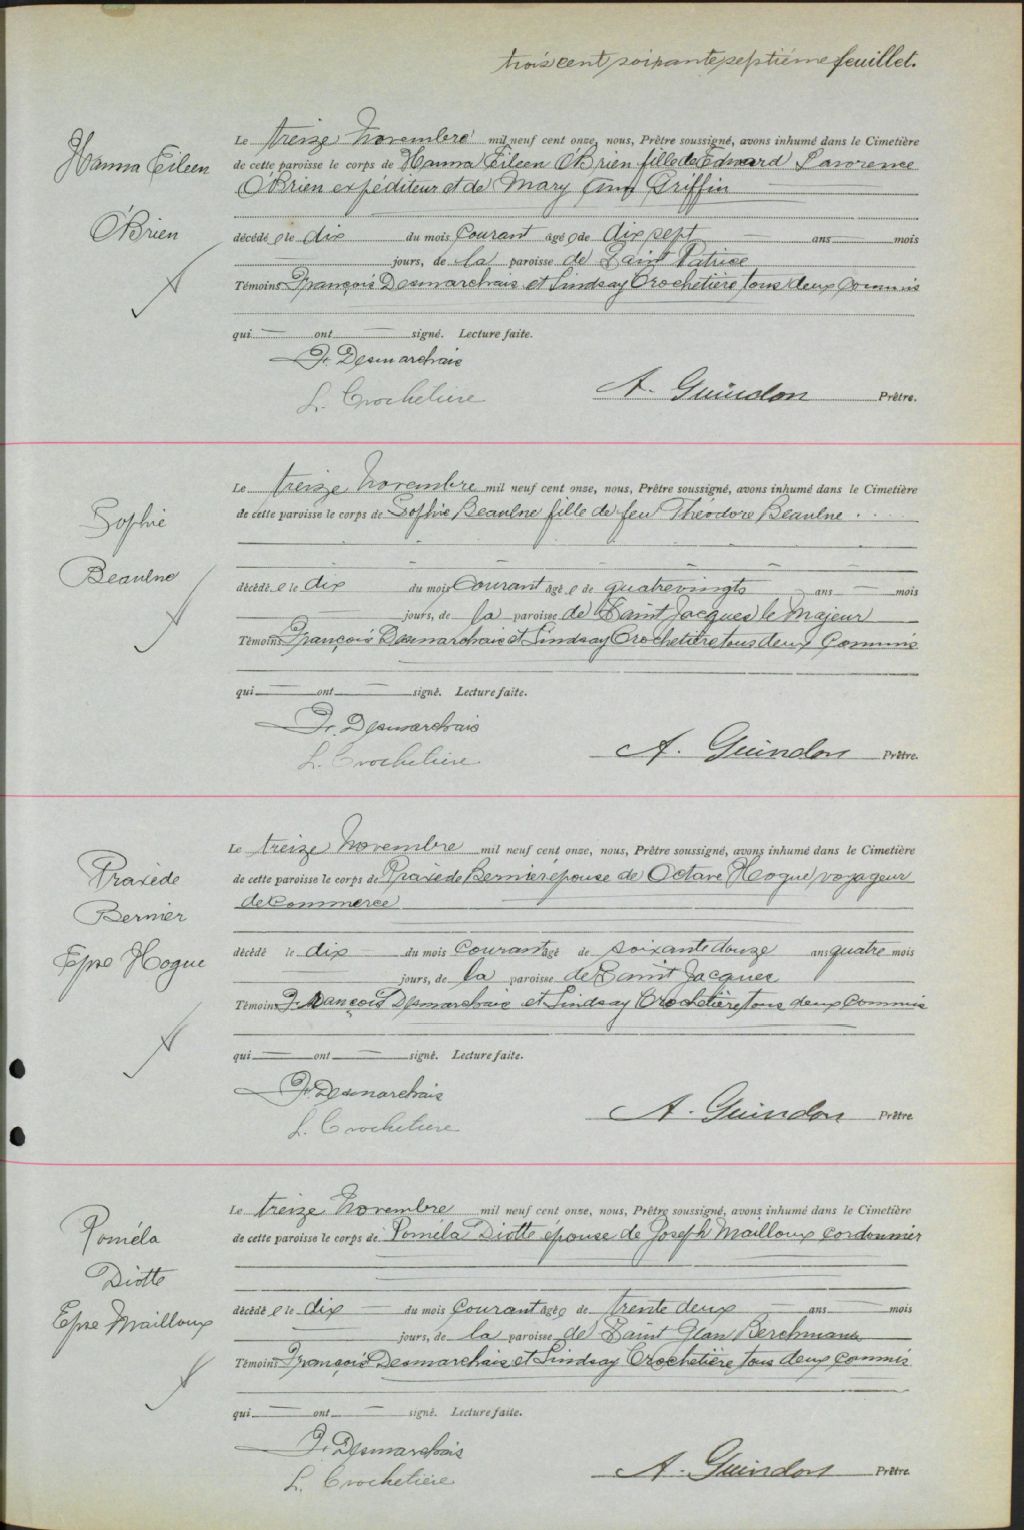 trois cent soixante septième feuillet.
Hanna Eileen
O'Brien
Le treize Novembre mil neuf cent onze, nous, Prêtre soussigné, avons inhumé dans le Cimetière
de cette paroisse le corps de Hanna Eileen O'Brien fille de Edward Lawrence
O'Brien expéditeur et de Mary Ann Griffin
décédé e le dix du mois courant âgé e de dix sept ans mois
jours, de la paroisse de Saint Patrice
Témoins François Desmarchais et Lindsay Crochetière tous deux commis
qui ont signé. Lecture faite.
Fr. Desmarchais
L. Crochetière
A. Guindon Prêtre.
Sophie
Beaulne
Le treize Novembre mil neuf cent onze, nous, Prêtre soussigné, avons inhumé dans le Cimetière
de cette paroisse le corps de Sophie Beaulne fille de feu Théodore Beaulne
décédé e le dix du mois courant âgé e de quatrevingts ans mois
jours, de la paroisse de Saint Jacques le Majeur
Témoins François Desmarchais et Lindsay Crochetière tous deux commis
qui ont signé. Lecture faite.
Fr. Desmarchais
L. Crochetière
A. Guindon Prêtre.
Praxède
Bernier
Epse Hogue
Le treize Novembre mil neuf cent onze, nous, Prêtre soussigné, avons inhumé dans le Cimetière
de cette paroisse le corps de Praxède Bernier épouse de Octave Hogue voyageur
de commerce
décédé le dix du mois courant âgé de soixante douze ans quatre mois
jours, de la paroisse de Saint Jacques
Témoins François Desmarchais et Lindsay Crochetière tous deux commis
qui ont signé. Lecture faite.
Fr. Desmarchais
L. Crochetière
A. Guindon Prêtre.
Poméla
Diotte
Epse Mailloux
Le treize Novembre mil neuf cent onze, nous, Prêtre soussigné, avons inhumé dans le Cimetière
de cette paroisse le corps de Poméla Diotte épouse de Joseph Mailloux cordonnier
décédé e le dix du mois courant âgé e de trente deux ans mois
jours, de la paroisse de Saint Jean Berchmans
Témoins François Desmarchais et Lindsay Crochetière tous deux commis
qui ont signé. Lecture faite.
Fr. Desmarchais
L. Crochetière
A. Guindon Prêtre.